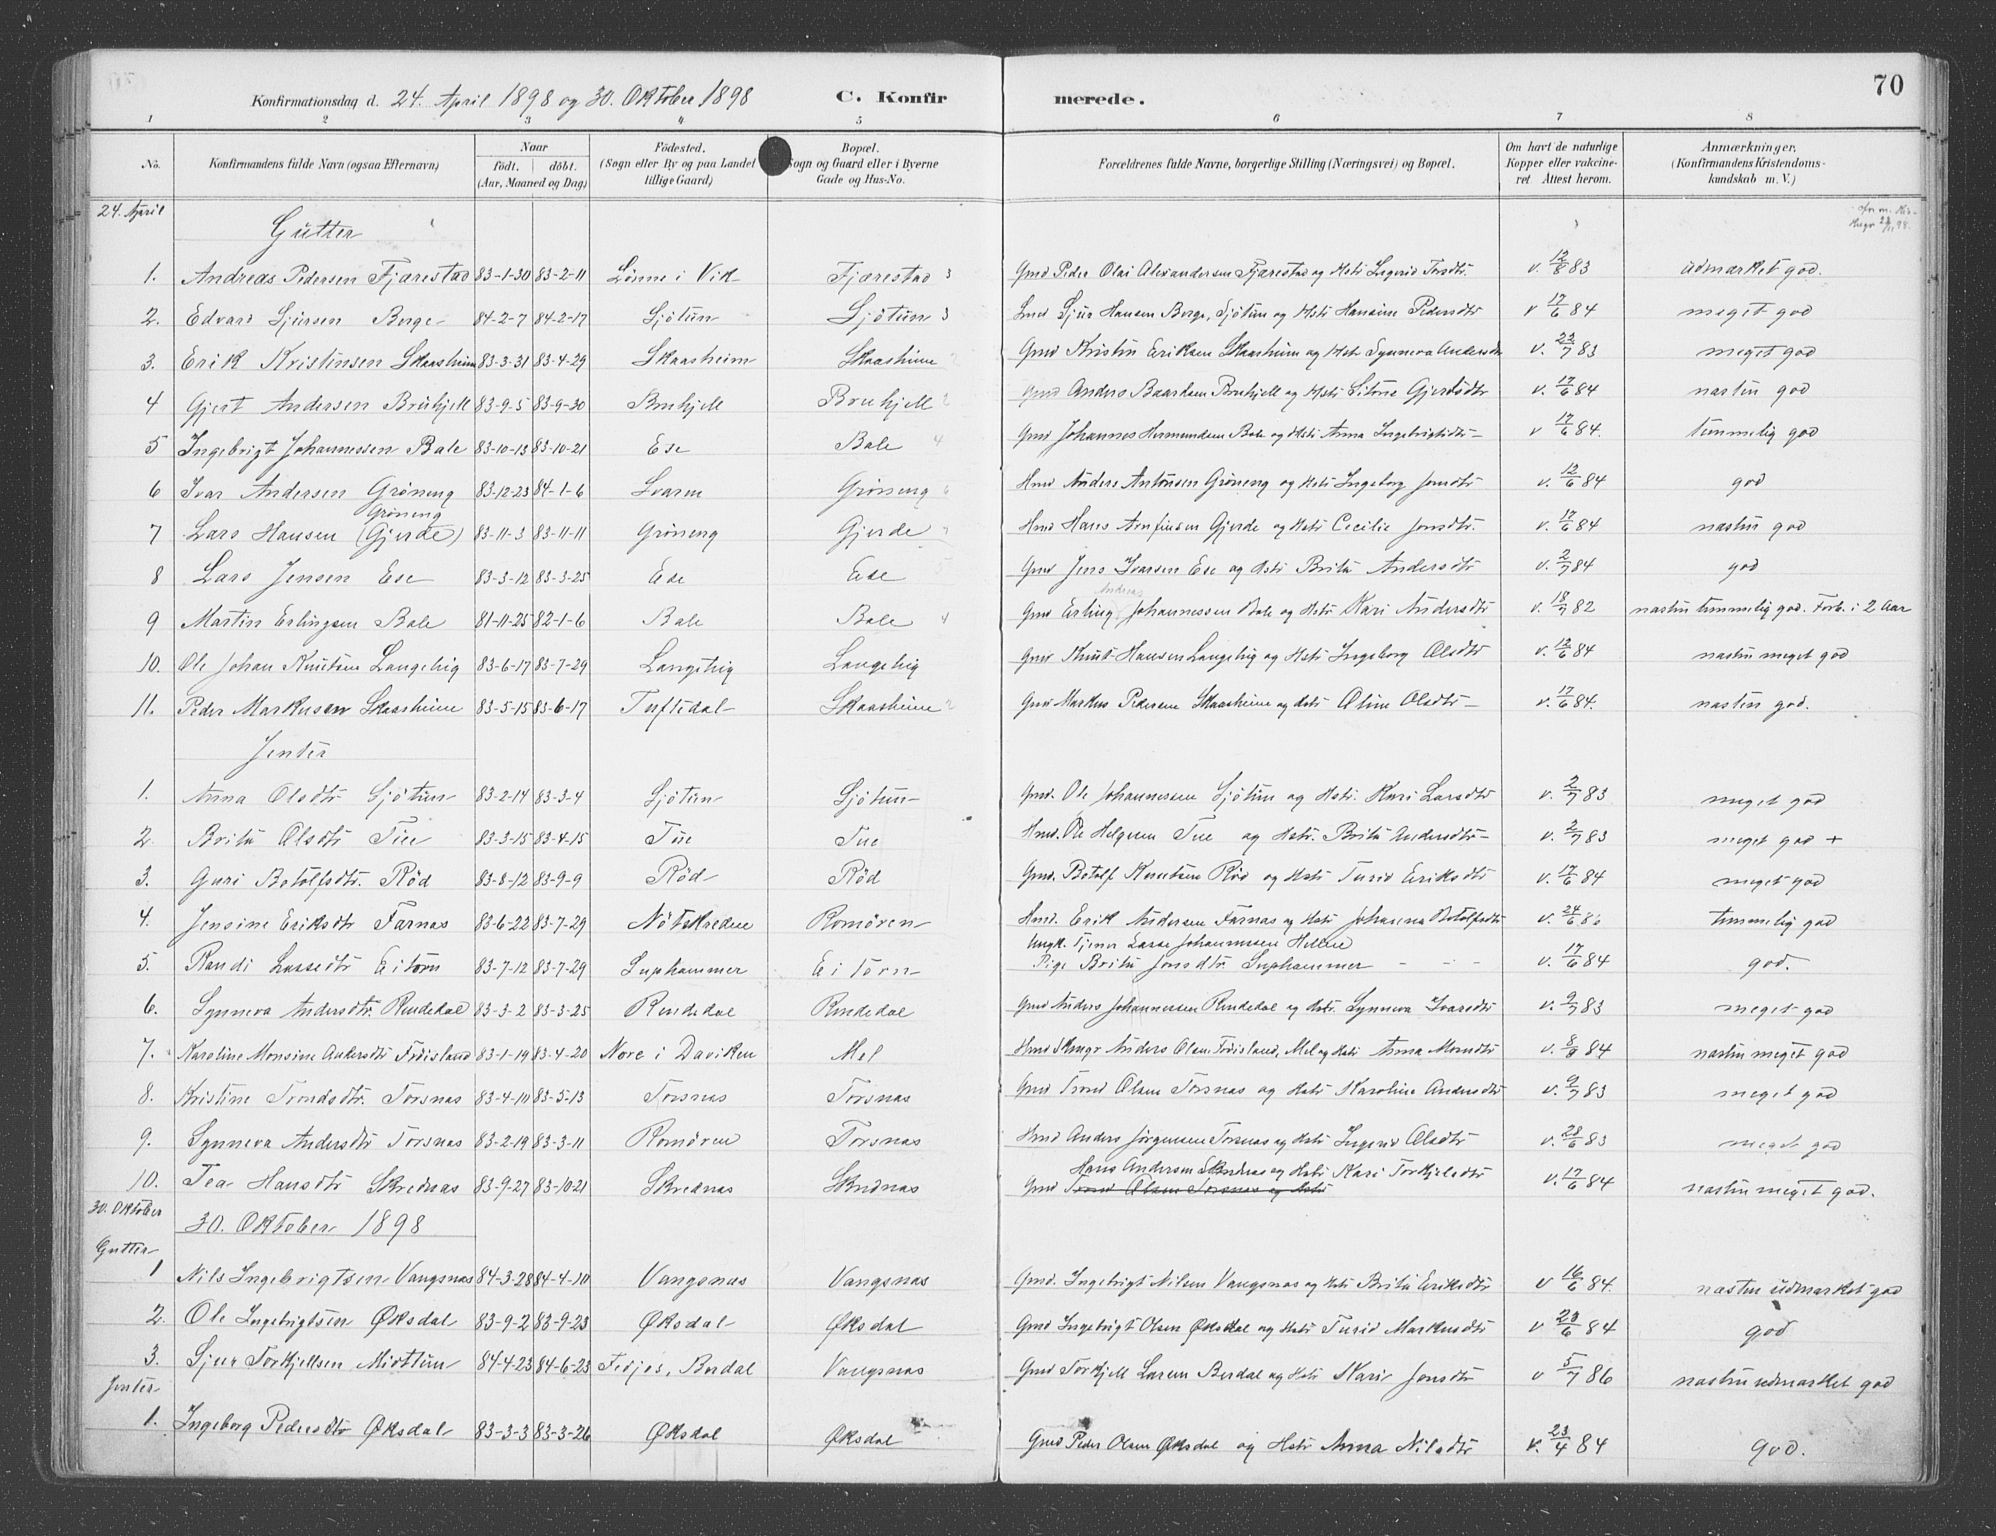 70
Konfirmationsdag d. 24. April 1898 og 30. Oktober 1898 C. Konfirmerede.
1 2 3 4 5 6 7 8
No. Konfirmandens fulde Navn (ogsaa Efternavn) Naar født. døbt. (Aar, Maaned og Dag) Fødested. (Sogn eller By og paa Landet tillige Gaard) Bopæl. Sogn og Gaard eller i Byerne Gade og Hus-No. Forældrenes fulde Navne, borgerlige Stilling (Næringsvei) og Bopæl. Om havt de naturlige Kopper eller vakcineret. Attest herom. Anmærkninger, (Konfirmandens Kristendomskundskab m. V.)
24. April
Gutter
1. Andreas Pedersen Fjærestad 83-1-30 83-2-11 Lønne i Vik Fjærestad 3 Gmd Peder Olai Alexandersen Fjærestad og Hstr Ingerid Torsdtr. v. 12/8 83 udmærket god.
2. Edvard Sjursen Berge 84-2-7 84-2-17 Sjøtun Sjøtun 3 Sjur Hansen Berge, Sjøtun og Hstr Hansine Pedersdtr v 17/6 84 meget god
3. Erik Kristensen Skaasheim 83-3-31 83-4-29 Skaasheim Skaasheim 2 Gmd Kristen Eriksen Skaasheim og Hstr Synneva Andersdtr v. 23/7 83 meget god
4 Gjert Andersen Brukjell 83-9-5 83-9-30 Brukjell Brukjell 2 Gmd Anders Baardsen Brukjell og Hstr Gjertsdtr v. 17/6 84 næsten god
5 Ingebrigt Johannessen Bale 83-10-13 83-10-21 Ese Bale 4 Gmd Johannes Hermundsen Bale og Hstr Anna Ingebrigtsdtr v 17/6 84. temmelig god
6 Ivar Andersen Grøneng 83-12-23 84-1-6 Svaren Grøneng 6 Hmd Anders Antonsen Grøneng og Hstr Ingeborg Jonsdtr v. 12/6 84 god
Grøneng
7 Lars Hansen (Gjerde) 83-11-3 83-11-11 Grøneng Gjerde Hmd Hans Arnfinsen Gjerde og Hstr Cecilie Jensdtr. v. 17/6 84 næsten god
8 Lars Jensen Ese 83-3-12 83-3-25 Ese Ese Gmd Jens Ivarsen Ese og Hstr Brita Andersdtr v. 2/7 84 god
Andreas
9 Martin Erlingsen Bale 81-11-25 82-1-6 Bale Bale 4 Gmd Erling Johannessen Bale og Hstr Kari Andersdtr v. 18/7 82 næsten temmelig god. Forb. i 2 Aar
10. Ole Johan Knutsen Langehig 83-6-17 83-7-29 Langehig Langehig Gmd Knut Hansen Langehig og Hstr Ingeborg Olsdtr v. 12/6 84 næsten meget god
11. Peder Markusen Skaasheim 83-5-15 83-6-17 Tuftedal Skaasheim 2 Gmd Markus Pedersen Skaasheim og Hstr Oline Olsdtr v. 17/6 84. næsten god.
Jenter
1. Anna Olsdtr Sjøtun 83-2-14 83-3-4 Sjøtun Sjøtun Gmd. Ole Johannessen Sjøtun og Hstr. Kari Larsdtr v. 2/7 83 meget god
2. Brita Olsdtr Tue 83-3-15 83-4-15 Tue Tue Hmd. Ole Helgesen Tue og Hstr. Brita Andersdtr v. 2/7 83 meget god +
3. Guri Botolfsdtr. Rød 83-8-12 83-9-9 Rød Rød Gmd. Botolf Knutsen Rød og Hstr Turid Eriksdtr v. 17/6 84 meget god
4. Jensine Eriksdtr Farnas 83-6-22 83-7-29 Nøtskreden Romøren Hmd. Erik Andersen Farnas og Hstr Johanna Botolfsdtr v. 24/6 86 temmelig god
5. Randi Lassedtr Eitorn 83-7-12 83-7-29 Suphammer Eitørn Ungk. Tjener Lasse Johannessen Hellene
Pige Brita Jonsdtr. Suphammer v. 17/6 84 god.
6. Synneva Andersdtr. Rendedal 83-3-2 83-3-25 Rendedal Rendedal Gmd Anders Johannessen Rendedal og Hstr. Synneva Ivarsdtr v. 9/7 83 meget god
7. Karoline Monsine Andersdtr Fröisland 83-1-19 83-4-20 Nore i Daviken Mel Hmd Skmgr Anders Olsen Fröisland, Mel og Hstr Anna Monsdtr v. 8/9 84 næsten meget god
8. Kristine Trondsdtr. Torsnas 83-4-10 83-5-13 Torsnas Torsnas Gmd Trond Olsen Torsnas og Hstr Karoline Andersdtr v. 9/7 83 meget god
9. Synneva Andersdtr Torsnas 83-2-19 83-3-11 Romøren Torsnas Hmd Anders Jørgensen Torsnas og Hstr Ingerid Olsdtr v. 28/6 83 meget god
Hans Andersen Skrednas og Hstr Kari Torkjelsdtr
10. Tea Hansdtr Skrednas 83-9-27 83-10-21 Skrednas Skrednas Gmd Trond Olsen Torsnas og Hstr v. 17/6 84 næsten meget god.
30. Oktober
30. Oktober 1898
Gutter
1 Nils Ingebrigtsen Vangsnas 84-3-28 84-4-10 Vangsnas Vangsnas Gmd. Ingebrigt Nilsen Vangsnas og Hstr Brita Eriksdtr v 16/6 84. næsten udmærket god
2. Ole Ingebrigtsen Øksdal 83-9-2 83-9-23 Øksdal Øksdal Gmd Ingebrigt Olsen Øksdal og Hstr Turid Markusdtr v 23/6 84 god
3. Sjur Torkjellsen Midttun 84-4-23 84-6-23 Fedjos, Berdal Vangsnas Gmd Torkjell Larsen Berdal og Hstr Kari Jonsdtr v 5/7 86 næsten udmærket god
Jenter
1. Ingeborg Pedersdtr Øksdal 83-3-3 83-3-26 Øksdal Øksdal Gmd Peder Olsen Øksdal og Hstr Anna Nilsdtr v. 23/4 84 god.